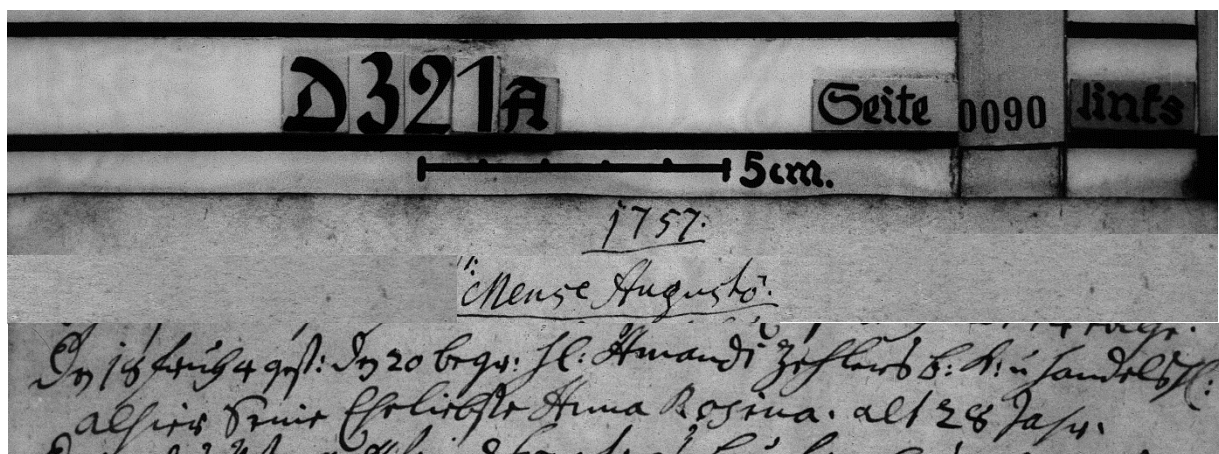 D321A Seite 0090 links
5cm.
1757.
Mense Augusto.
Dn 18 früh 4 gest: Dn 20 begr: H: Amandi Zehlers b: K: u handels H:
alhier Seine Eheliebste Anna Rosina. alt 28 Jahr.